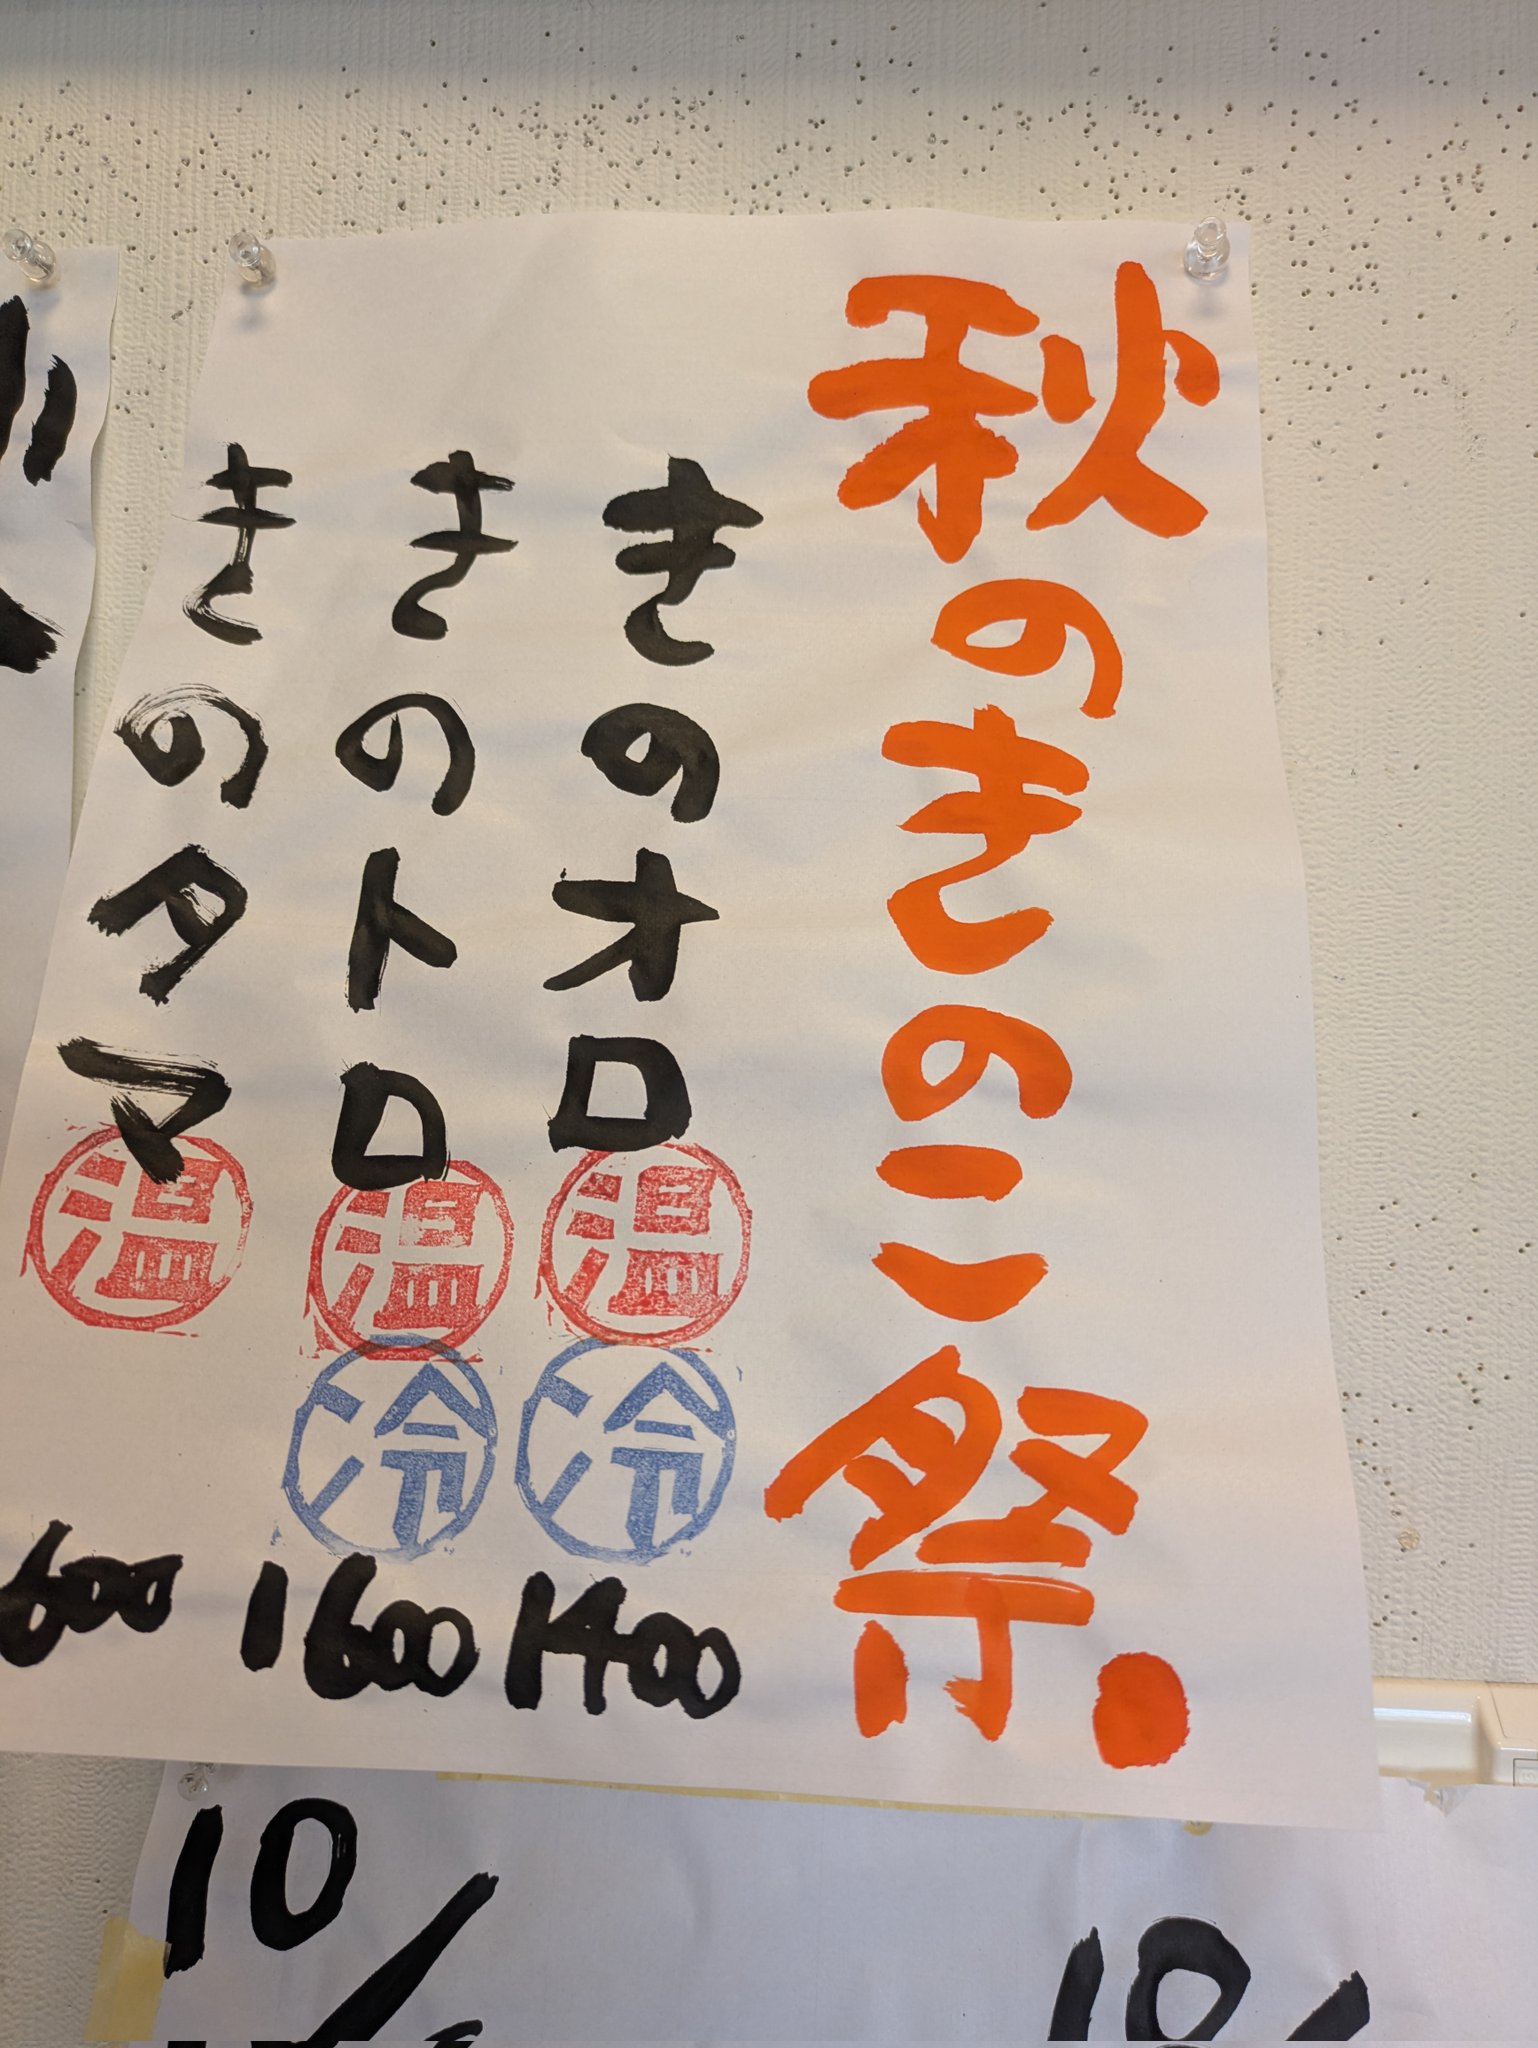 秋のきのこ祭.
きのオロ 温 冷 1400
きのトロ 温 冷 1600
きのタマ 温 600
10/
10/